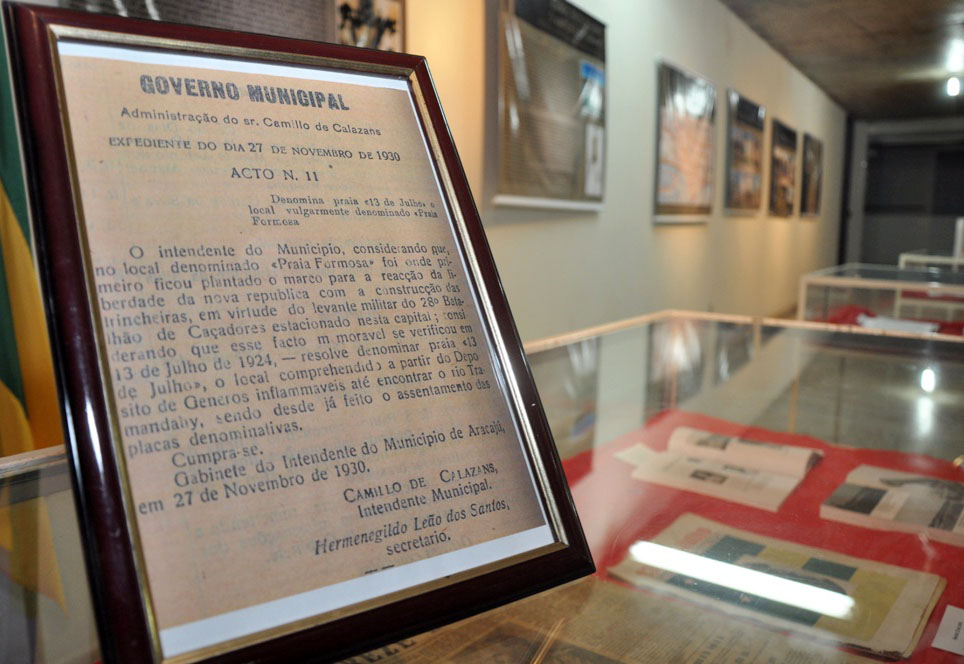 GOVERNO MUNICIPAL
Administração do sr. Camillo de Calazans
EXPEDIENTE DO DIA 27 DE NOVEMBRO DE 1930
ACTO N. 11
Denomina praia «13 de Julho» o
local vulgarmente denominado «Praia
Formosa»
O intendente do Municipio, considerando que,
no local denominado «Praia Formosa» foi onde pri-
meiro ficou plantado o marco para a reacção da li-
berdade da nova republica com a construcção das
trincheiras, em virtude do levante militar do 28º Bata-
lhão de Caçadores estacionado nesta capital; consi-
derando que esse facto m moravel se verificou em
13 de Julho de 1924, — resolve denominar praia «13
de Julho», o local comprehendido a partir do Depo
sito de Generos inflammaveis até encontrar o rio Tra-
mandahy, sendo desde já feito o assentamento das
placas denominativas.
Cumpra-se.
Gabinete do Intendente do Municipio de Aracajú,
em 27 de Novembro de 1930.
CAMILLO DE CALAZANS,
Intendente Municipal.
Hermenegildo Leão dos Santos,
secretario.